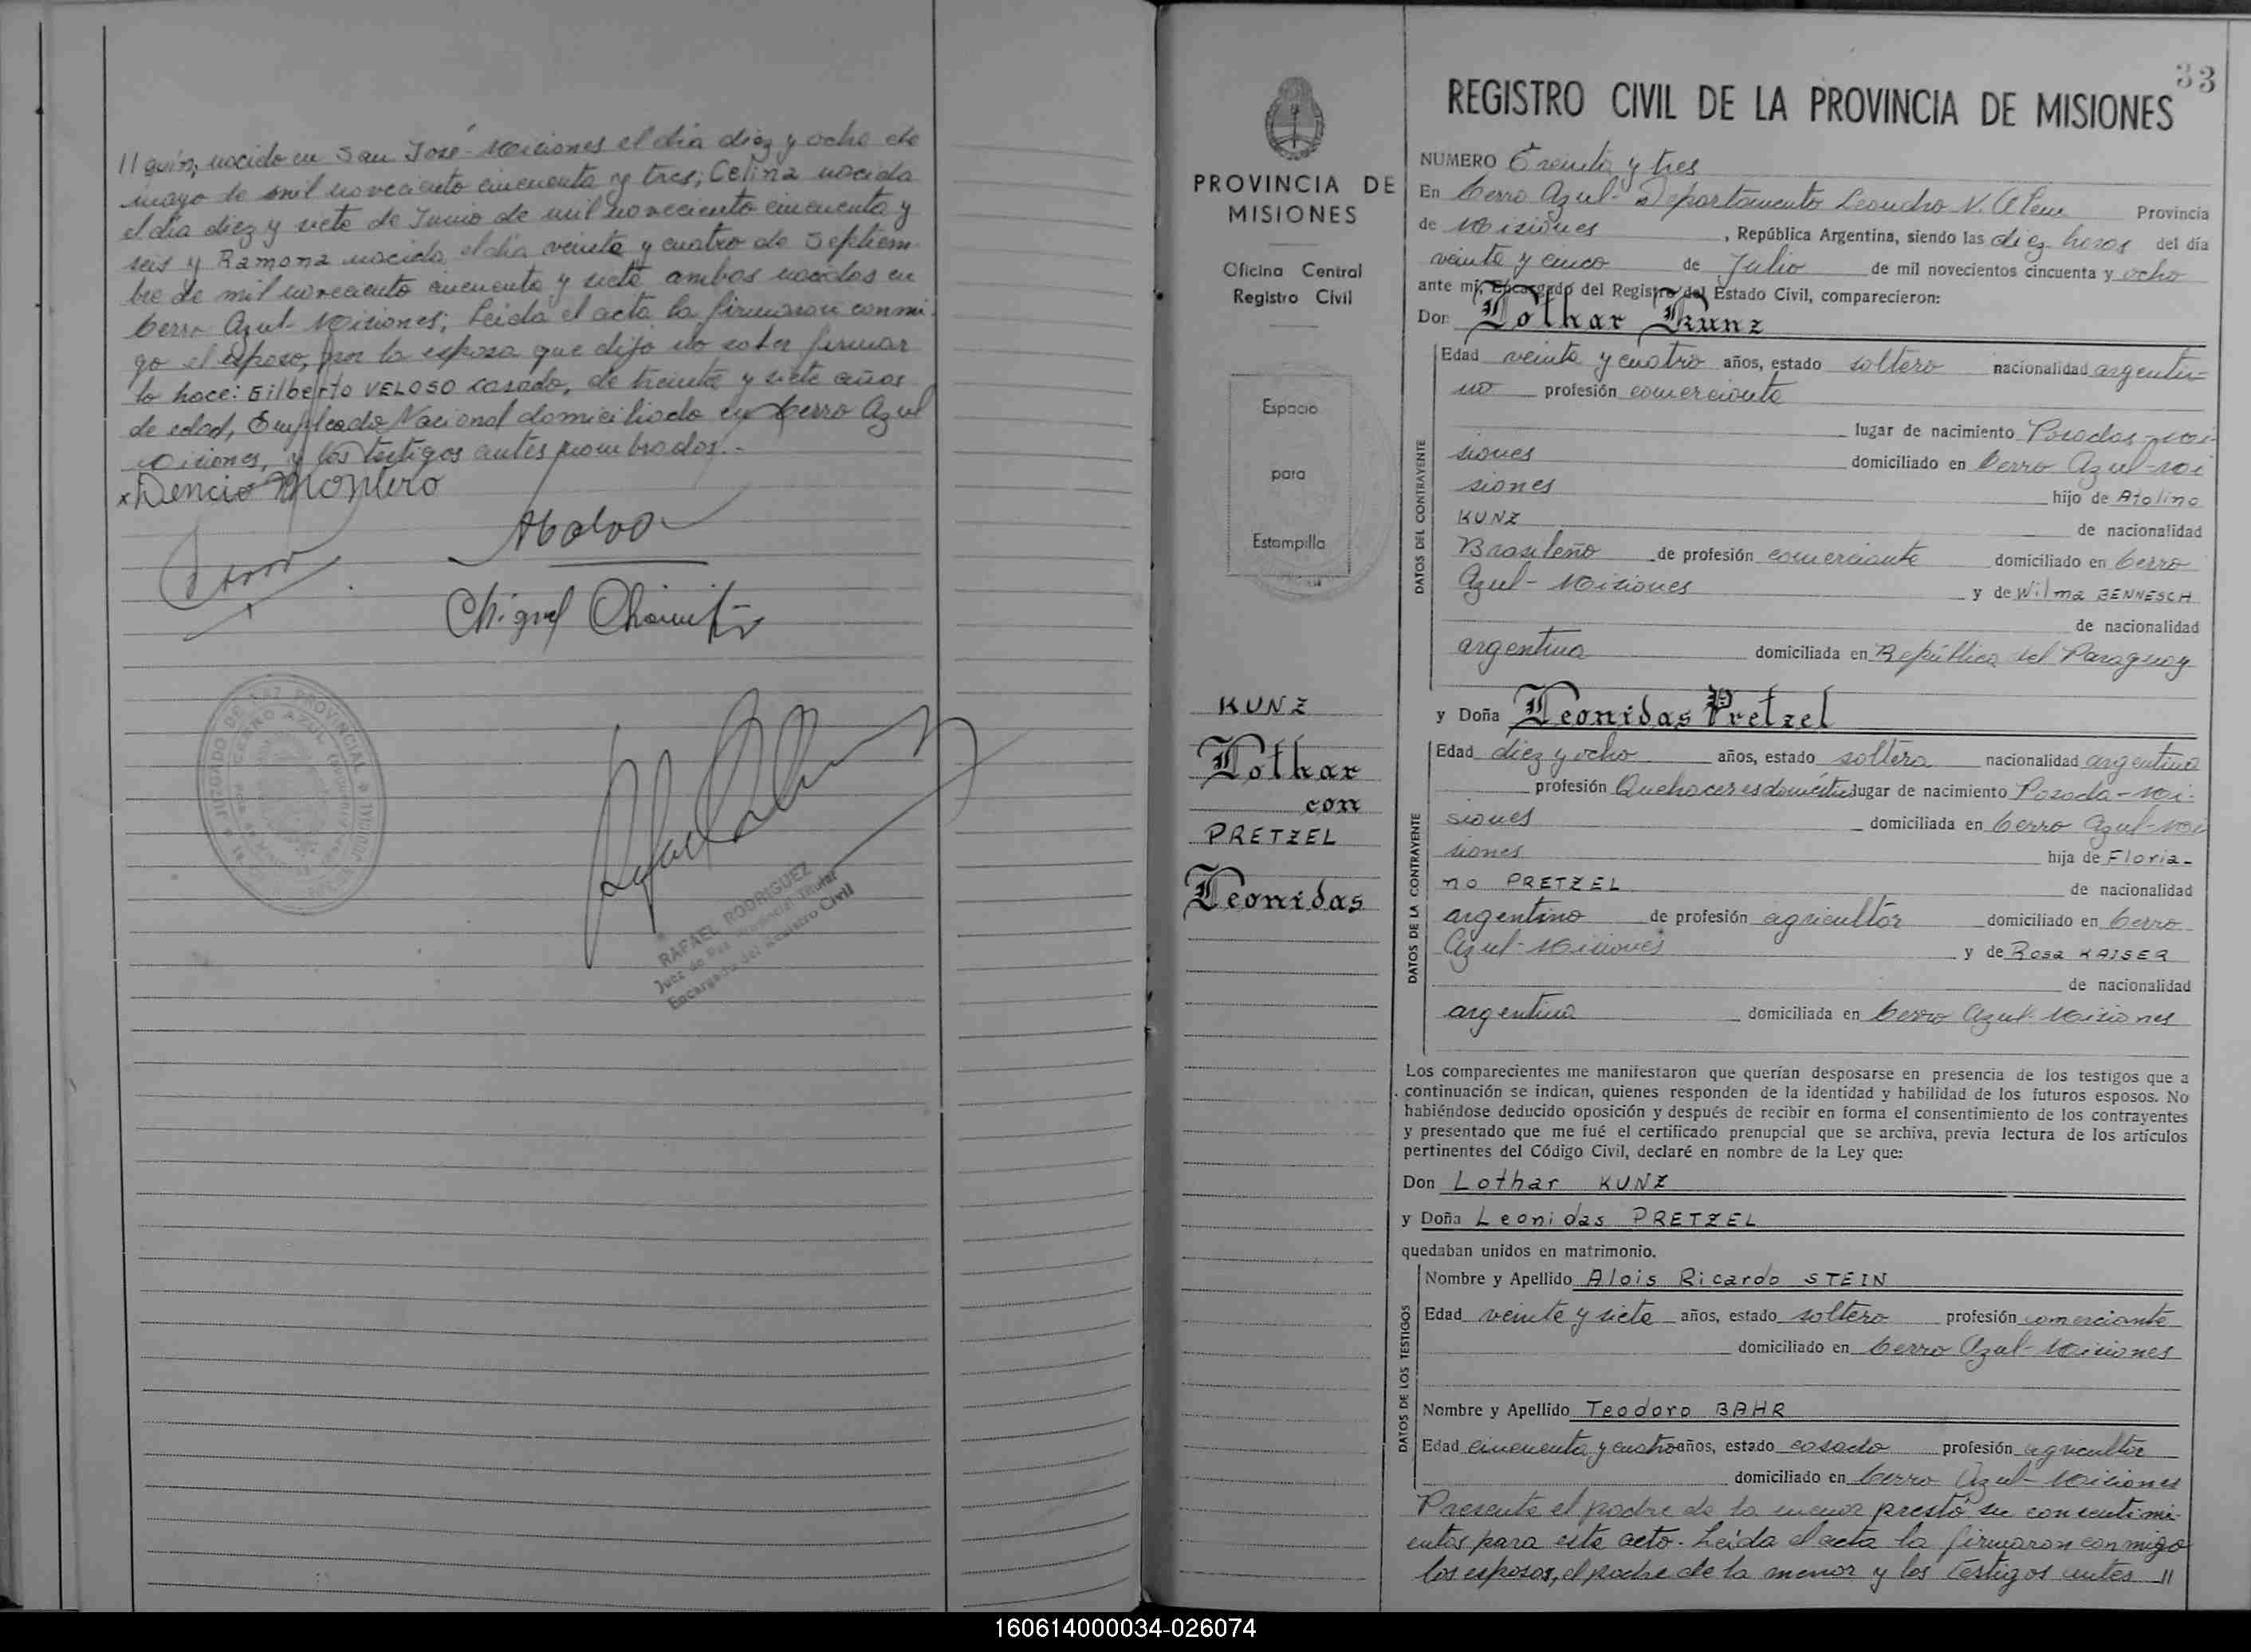 // guín, nacido en San José-Misiones el día diez y ocho de
mayo de mil novecientos cincuenta y tres; Celina nacida
el día diez y siete de Junio de mil novecientos cincuenta y
seis y Ramona nacida el día veinte y cuatro de Septiem-
bre de mil novecientos cincuenta y siete ambas nacidas en
Cerro Azul-Misiones; Leida el acta la firmaron conmi-
go el esposo, por la esposa que dijo no saber firmar
lo hace: Gilberto VELOSO casado, de treinta y siete años
de edad, Empleado Nacional domiciliado en Cerro Azul
Misiones, y los testigos antes nombrados.-
x Dencio Montero
RAFAEL RODRIGUEZ
Juez de Paz Provincial Titular
Encargado del Registro Civil
PROVINCIA DE
MISIONES
Oficina Central
Registro Civil
Espacio
para
Estampilla
KUNZ
Lothar
con
PRETZEL
Leonidas
33
REGISTRO CIVIL DE LA PROVINCIA DE MISIONES
NUMERO Treinta y tres
En Cerro Azul- Departamento Leandro N. Alem Provincia
de Misiones , República Argentina, siendo las diez horas del día
veinte y cinco de Julio de mil novecientos cincuenta y ocho
ante mi, Encargado del Registro del Estado Civil, comparecieron:
Don Lothar Kunz
DATOS DEL CONTRAYENTE
Edad veinte y cuatro años, estado soltero nacionalidad argenti-
no profesión comerciante
lugar de nacimiento Posadas-Mi-
siones domiciliado en Cerro Azul-Mi
siones hijo de Atolino
KUNZ de nacionalidad
Brasileño de profesión comerciante domiciliado en Cerro
Azul- Misiones y de Wilma BENNESCH
de nacionalidad
argentina domiciliada en República del Paraguay
y Doña Leonidas Pretzel
DATOS DE LA CONTRAYENTE
Edad diez y ocho años, estado soltera nacionalidad argentina
profesión Quehaceres domésticos lugar de nacimiento Posada-Mi-
siones domiciliada en Cerro Azul-Mi
siones hija de Floria-
no PRETZEL de nacionalidad
argentino de profesión agricultor domiciliado en Cerro
Azul-Misiones y de Rosa KAISER
de nacionalidad
argentina domiciliada en Cerro Azul-Misiones
Los comparecientes me manifestaron que querían desposarse en presencia de los testigos que a
continuación se indican, quienes responden de la identidad y habilidad de los futuros esposos. No
habiéndose deducido oposición y después de recibir en forma el consentimiento de los contrayentes
y presentado que me fué el certificado prenupcial que se archiva, previa lectura de los artículos
pertinentes del Código Civil, declaré en nombre de la Ley que:
Don Lothar KUNZ
y Doña Leonidas PRETZEL
quedaban unidos en matrimonio.
DATOS DE LOS TESTIGOS
Nombre y Apellido Alois Ricardo STEIN
Edad veinte y siete años, estado soltero profesión comerciante
domiciliado en Cerro Azul-Misiones
Nombre y Apellido Teodoro BAHR
Edad cincuenta y cuatro años, estado casado profesión agricultor
domiciliado en Cerro Azul-Misiones
Presente el padre de la menor prestó su consentimi-
entos para este acto. Leída el acta la firmaron conmigo
los esposos, el padre de la menor y los testigos antes //
160614000034-026074